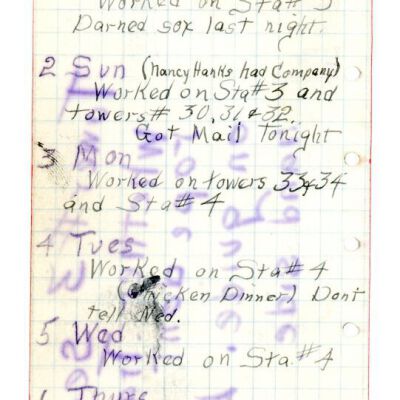 Worked on Sta# 3
Darned sox last night.
2 Sun (Nancy Hanks had Company)
Worked on Sta# 3 and
towers# 30, 31 & 32.
Got Mail Tonight
3 Mon
Worked on towers 33 & 34
and Sta# 4
4 Tues
Worked on Sta# 4
(Chicken Dinner) Dont
tell Ned.
5 Wed
Worked on Sta# 4
Thurs